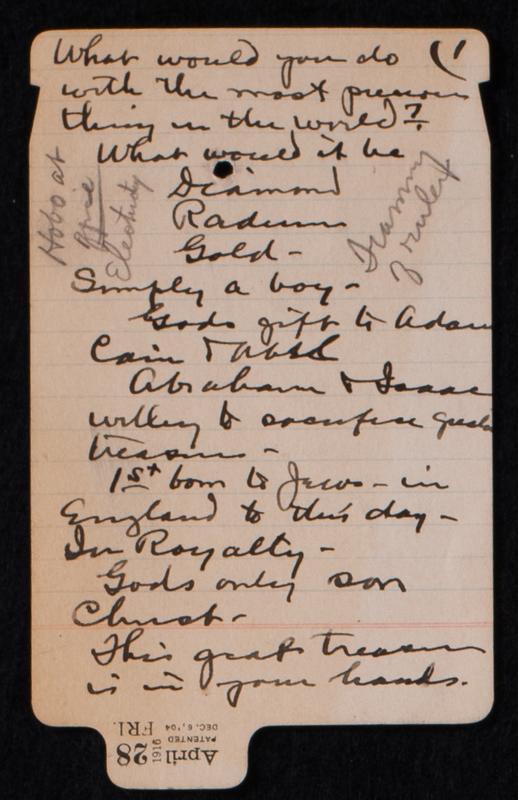 What would you do (1
with the most precious
thing in the world?
What would it be
Diamond
Radium
Gold -
Simply a boy -
Gods gift to Adam
Cain & Abel
Abraham & Isaac
willing to sacrifice
treasure -
1st born to Jews - in
England to this day -
In Royalty -
Gods only son
Christ -
This great treasure
is in your hands.
Hobo at
Electricity
April
28
1916
FRI.
PATENTED
DEC. 6, '04